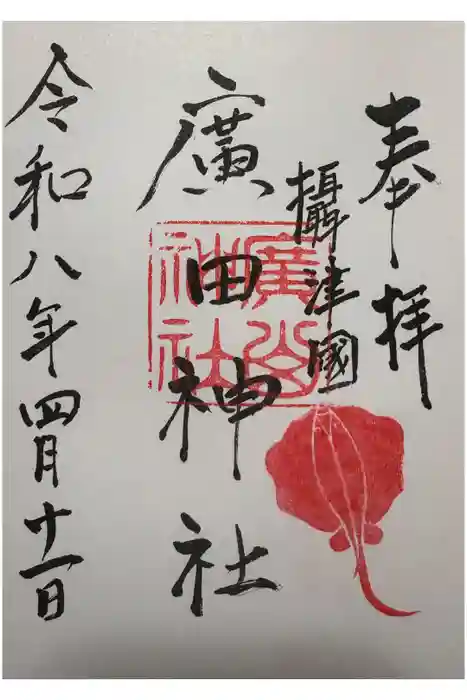 奉拝
攝津國
廣田神社
令和八年四月十一日